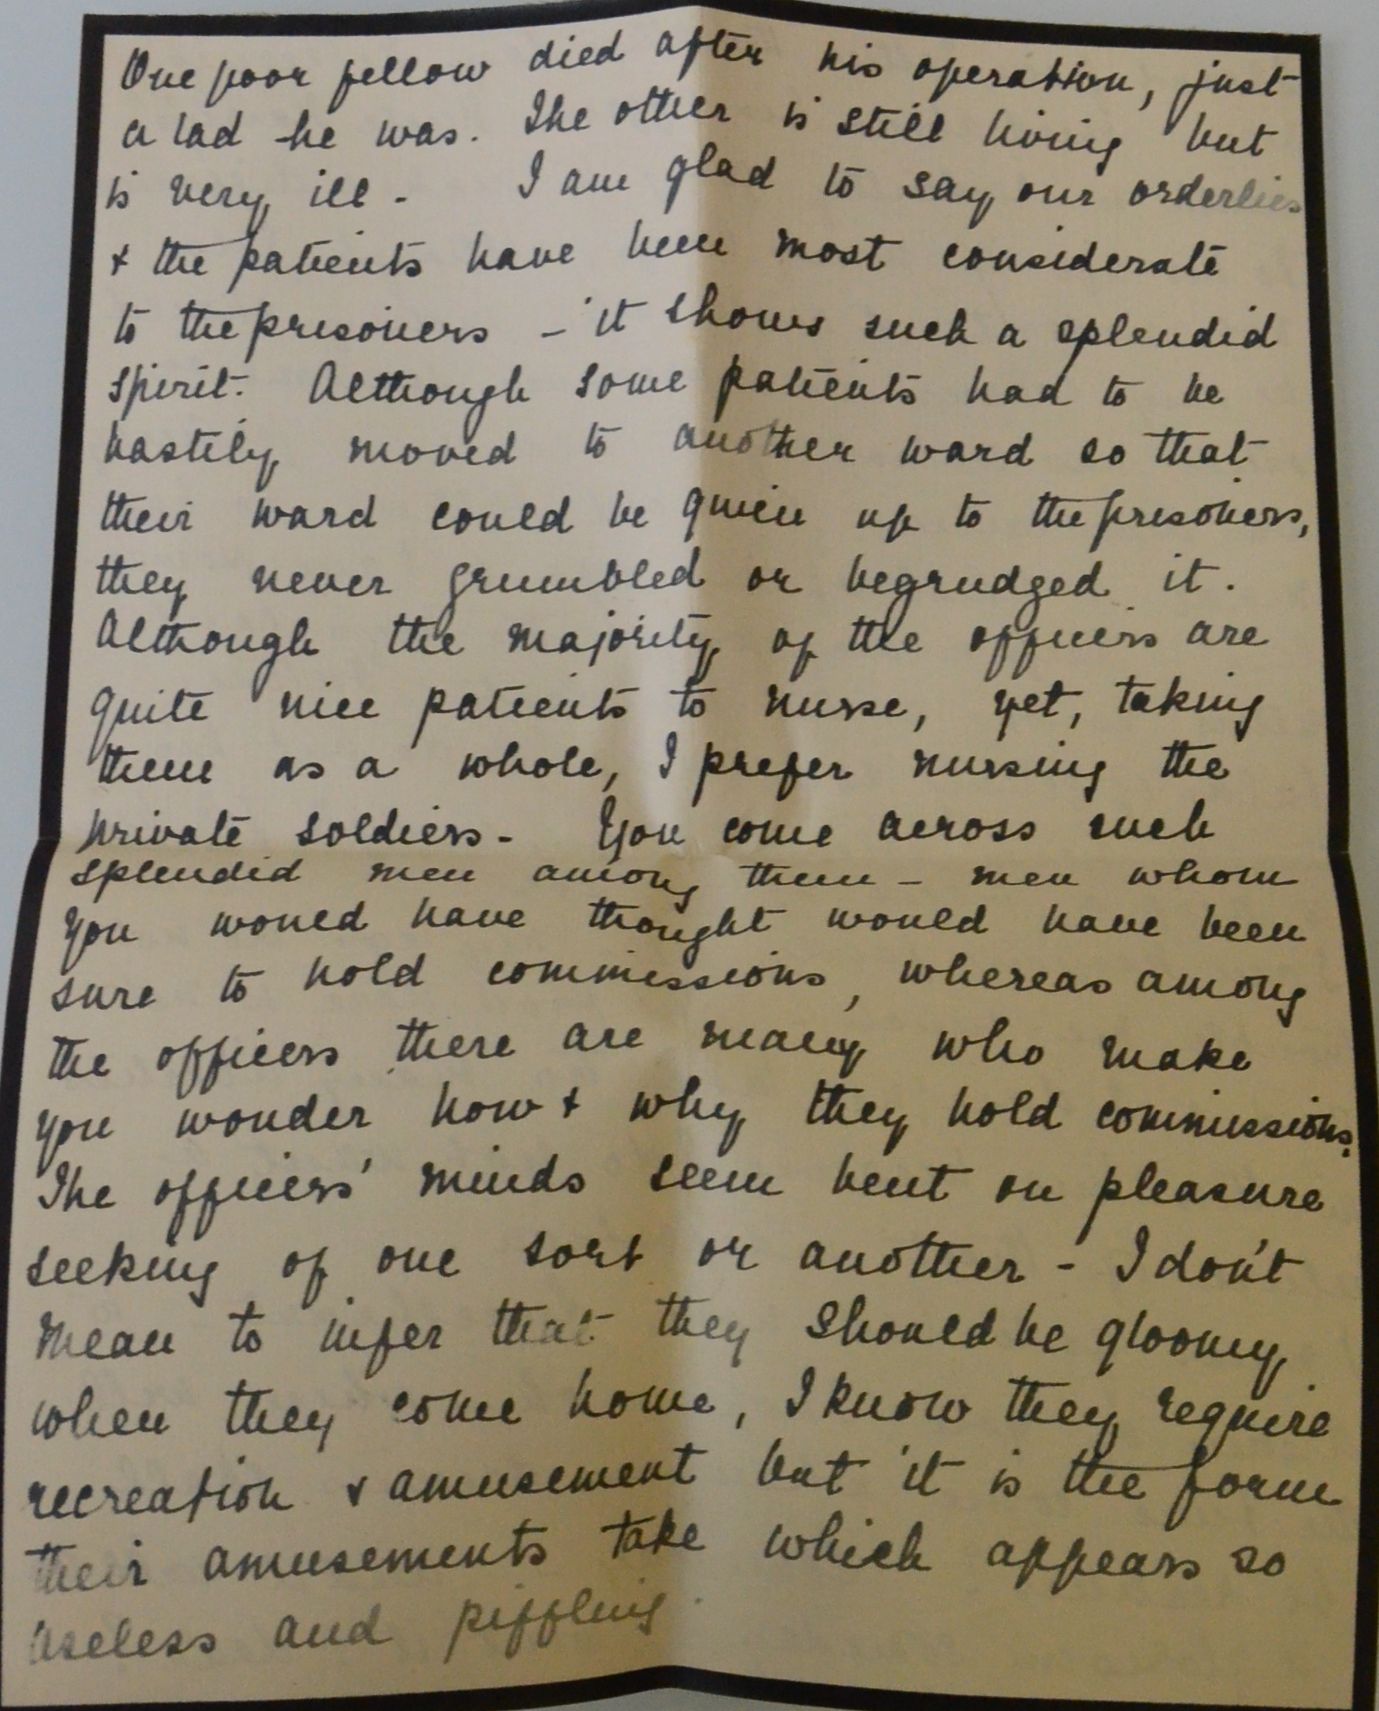 One poor fellow died after his operation, just
a lad he was. The other is still living but
is very ill - I am glad to say our orderlies
& the patients have been most considerate
to the prisoners - it shows such a splendid
spirit. Although some patients had to be
hastily moved to another ward so that
their ward could be given up to the prisoners,
they never grumbled or begrudged it.
Although the majority of the officers are
quite nice patients to nurse, yet, taking
them as a whole, I prefer nursing the
private soldiers - You come across such
splendid men among them - men whom
you would have thought would have been
sure to hold commissions, whereas among
the officers there are many who make
you wonder how & why they hold commissions.
The officers' minds seem bent on pleasure
seeking of one sort or another - I don't
mean to infer that they should be gloomy
when they come home, I know they require
recreation & amusement but it is the form
their amusements take which appears so
useless and piffling.